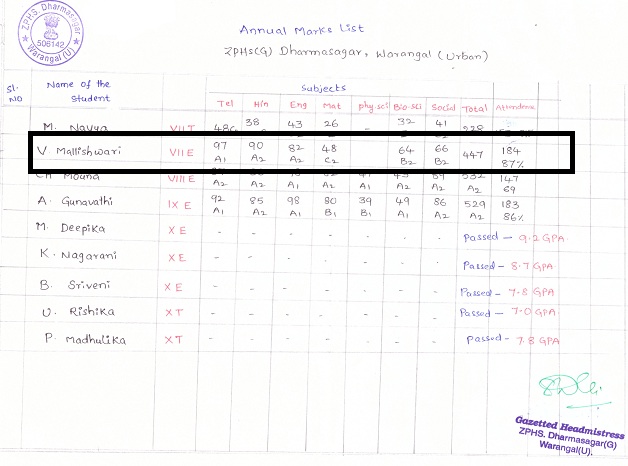 ZPHS. Dharmasagar
506142
Warangal(U)
Annual Marks List
ZPHS(G) Dharmasagar, Warangal (Urban)
Sl. NO Name of the Student Subjects
Tel Hin Eng Mat phy.sci Bio.sci Social Total Attendence
M. Navya VII T 38 43 26 - 32 41 228
V Mallishwari VII E 97 90 82 48 64 66 447 184
A1 A2 A2 C2 B2 B2 87%
CH Mouna VIII E 532 147
A2 A2 A2 A2 A2 A1 A2 A2 69
A. Gunavathi IX E 92 85 98 80 39 49 86 529 183
A1 A2 A1 B1 B1 A1 A2 A2 86%
M. Deepika X E - - - - - - - Passed - 9.2 GPA
K. Nagarani X E - - - - - - - Passed - 8.7 GPA
B. Sriveni X E - - - - - - - Passed - 7.8 GPA
U. Rishika X T - - - - - - - Passed - 7.0 GPA
P. Madhulika X T - - - - - - - Passed - 7.8 GPA
Gazetted Headmistress
ZPHS. Dharmasagar(G)
Warangal(U).